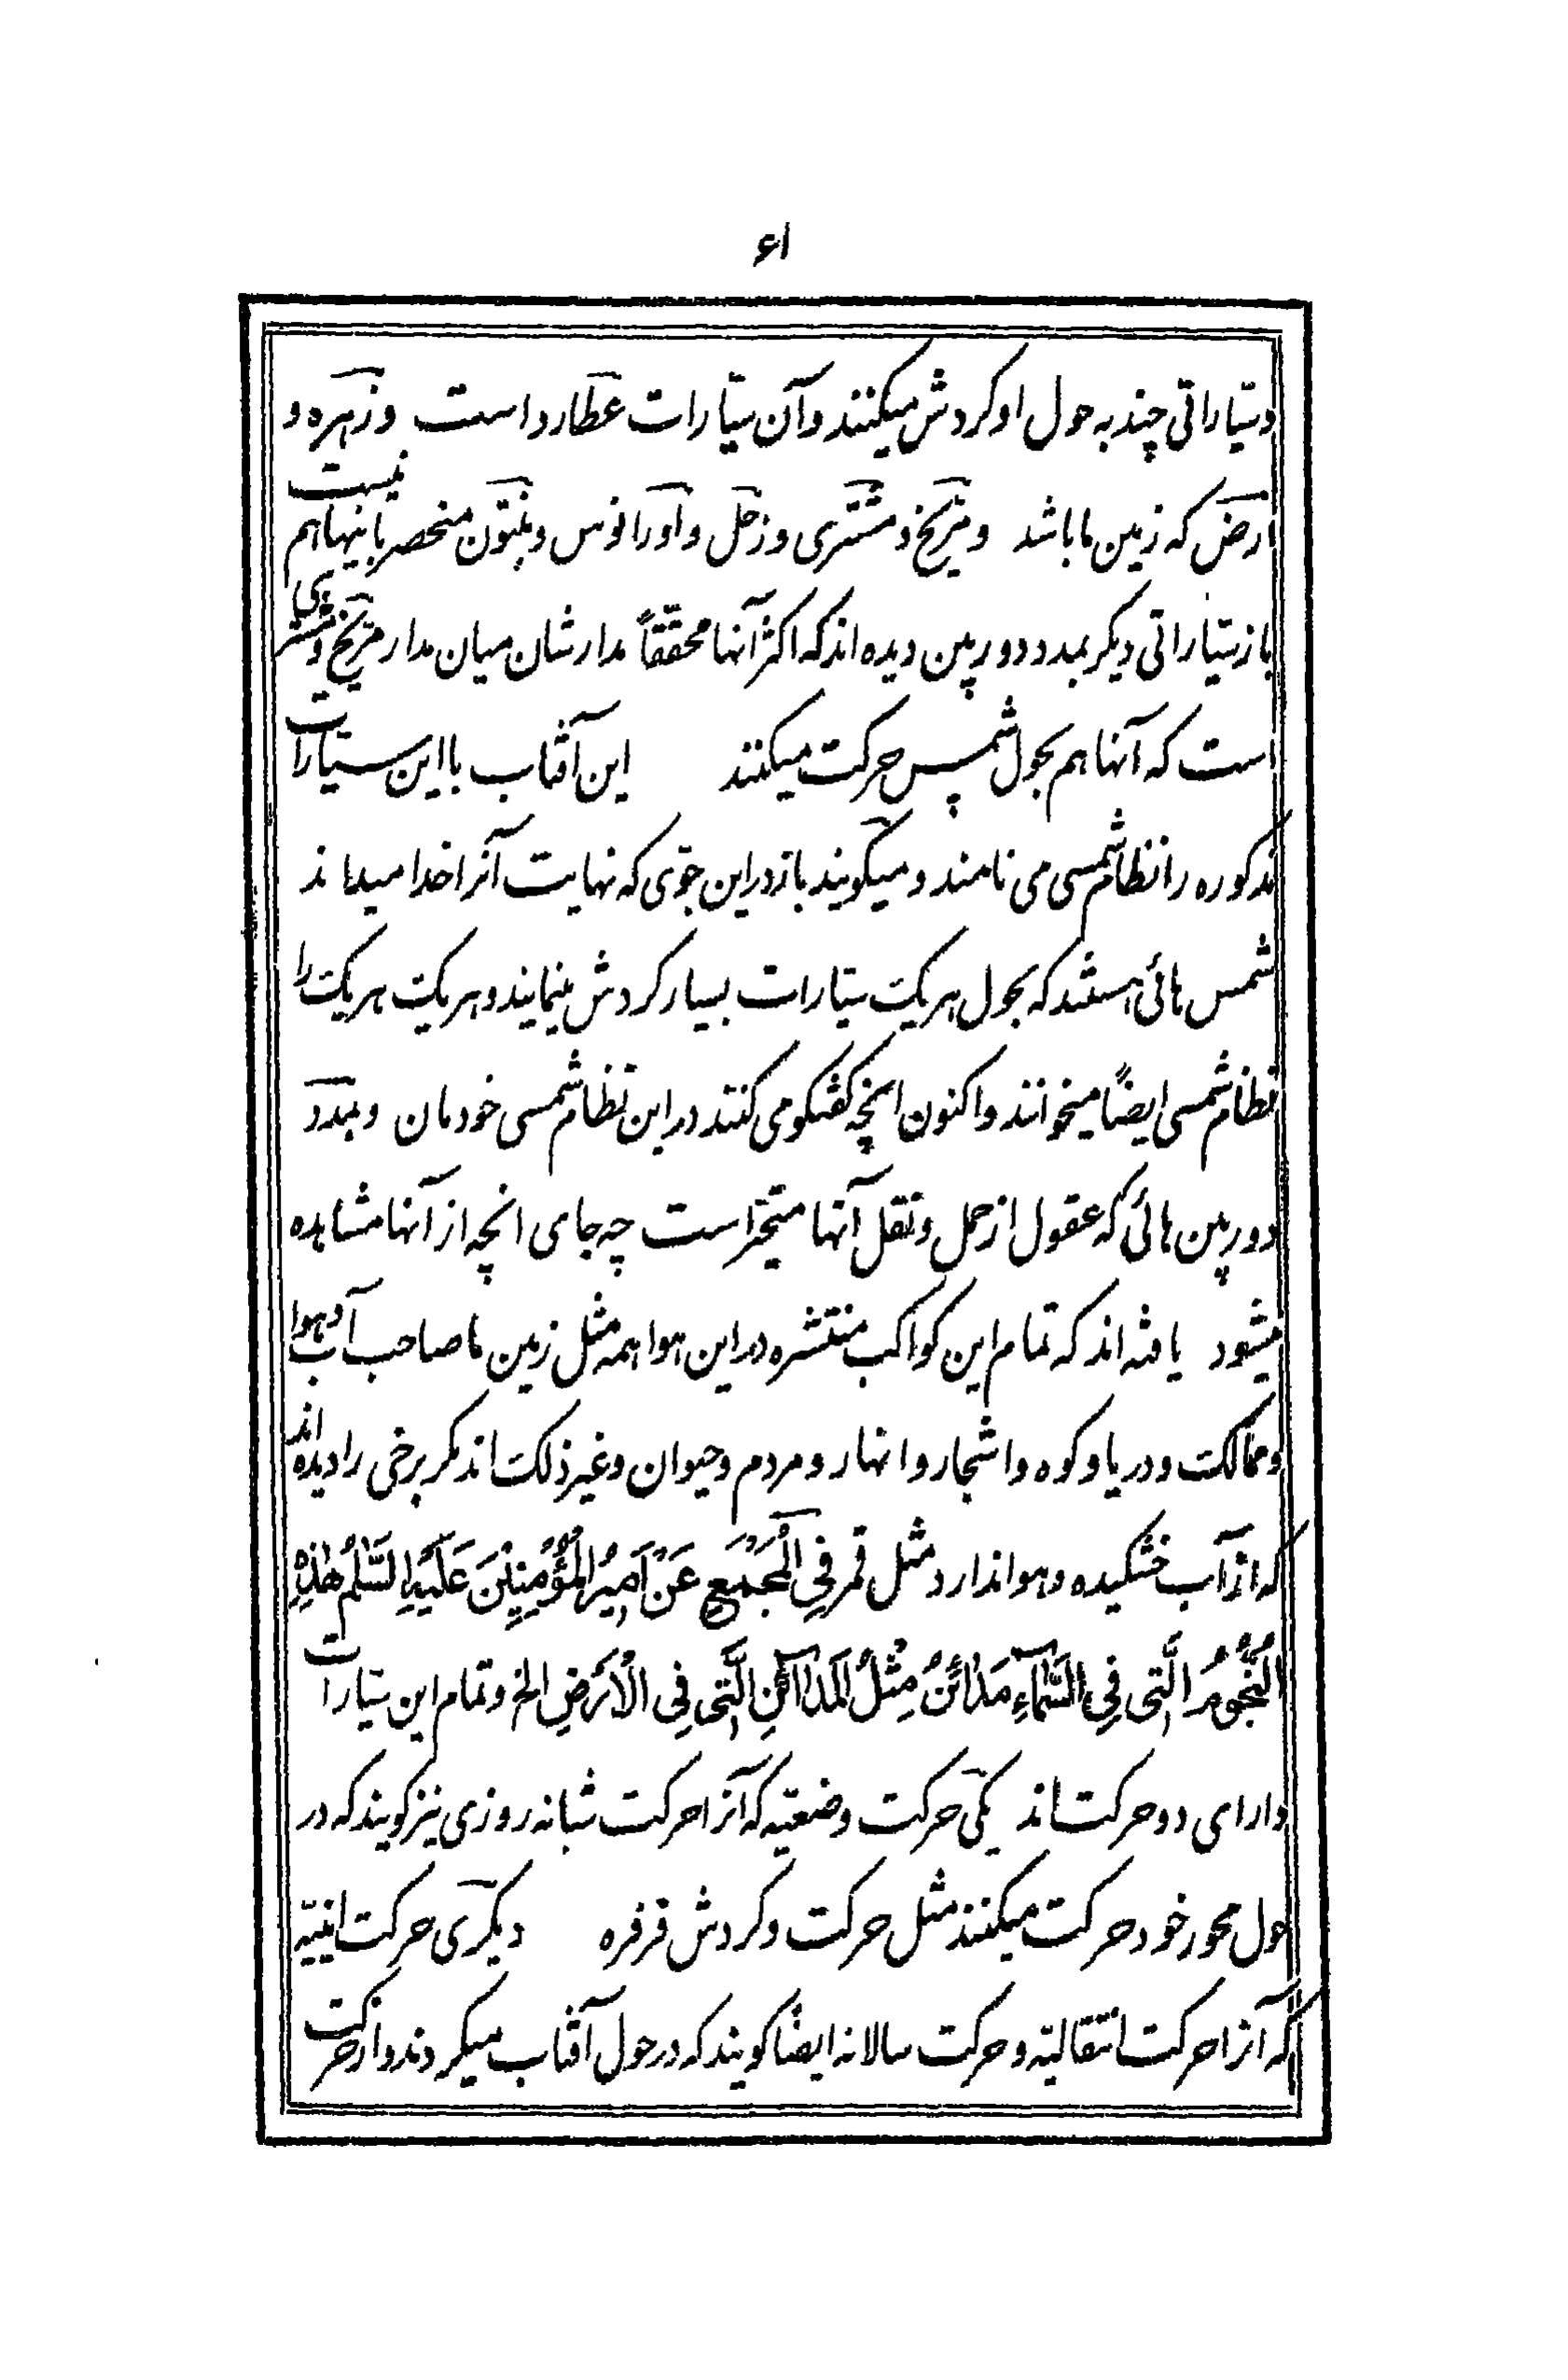 ۶۱
و سیّاراتی چند به حول او کردش میکنند و آن سیّارات عطارد است و زهره و
ارض که زمین ما باشد و مرّیخ و مشتری و زحل و اورانوس و نپتون منحصر باینها هم نیست
باز سیّاراتی دیکر بمدد دورپین دیده اند که اکثر آنها محققاً مدارشان میان مدار مرّیخ و مشتری
است که آنها هم بحول شمس حرکت میکنند این آفتاب با این سیّارات
مذکوره را نظام شمسی می نامند و میکویند باز در این جوّی که نهایت آنرا خدا میداند
شمس هائی هستند که بحول هریک سیّارات بسیار کردش مینمایند و هریک هریک را
نظام شمسی ایضاً میخوانند و اکنون انچه کفتکو می کنند در این نظام شمسی خودمان و بمدد
دورپین هائی که عقول از حمل و نقل آنها متحیّر است چه جای انچه از آنها مشاهده
میشود یافته اند که تمام این کواکب منتشره در این هوا همه مثل زمین ما صاحب آب و هوا
و ممالک و دریا و کوه و اشجار و انهار و مردم و حیوان و غیر ذلک اند مکر برخی را دیده اند
که از آب خشکیده و هوا ندارد مثل قمر فِی الْمَجْمَعِ عَنْ اَمِیرُ الْمُؤْمِنِینَ عَلَیْهِ السَّلٰمُ هٰذِهِ
النُّجُومُ الَّتِی فِی السَّمٰآءِ مَدٰائِنُ مِثْلُ الْمَدٰآئِنِ الَّتِی فِی الْاَرْضِ الخ و تمام این سیّارات
دارای دو حرکت اند یکی حرکت وضعیّه که آنرا حرکت شبانه روزی نیز کویند که در
حول محور خود حرکت میکنند مثل حرکت و کردش فرفره دیکری حرکت اینیّه
که آنرا حرکت انتقالیّه و حرکت سالانه ایضاً کویند که در حول آفتاب میکردند و از حرکت